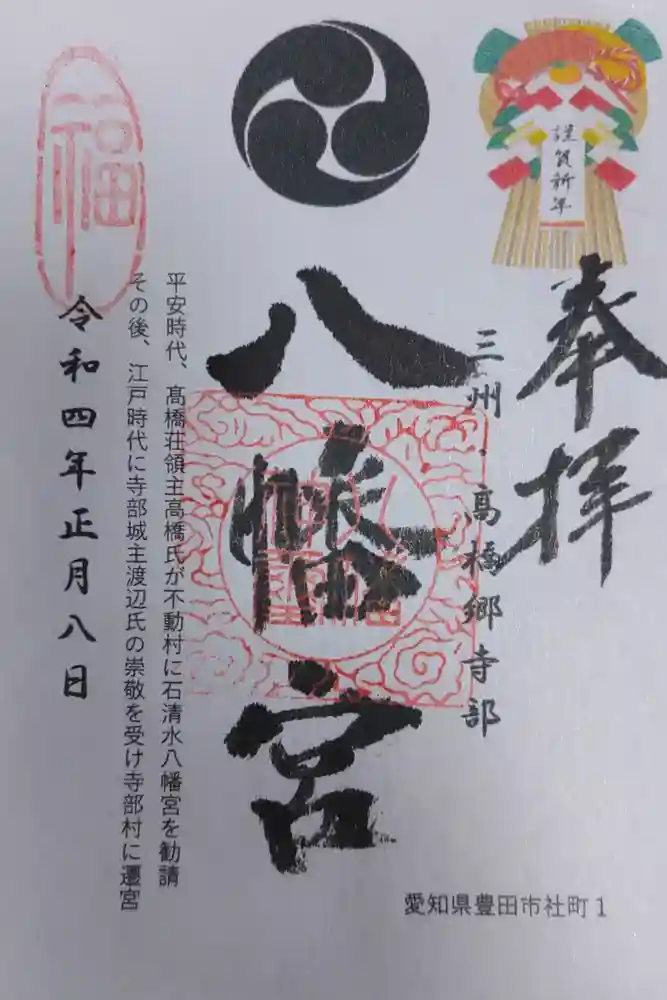 謹賀新年
奉拝
三州 高橋郷寺部
八幡宮
平安時代、高橋荘領主高橋氏が不動村に石清水八幡宮を勧請
その後、江戸時代に寺部城主渡辺氏の崇敬を受け寺部村に遷宮
福
令和四年正月八日
愛知県豊田市社町1